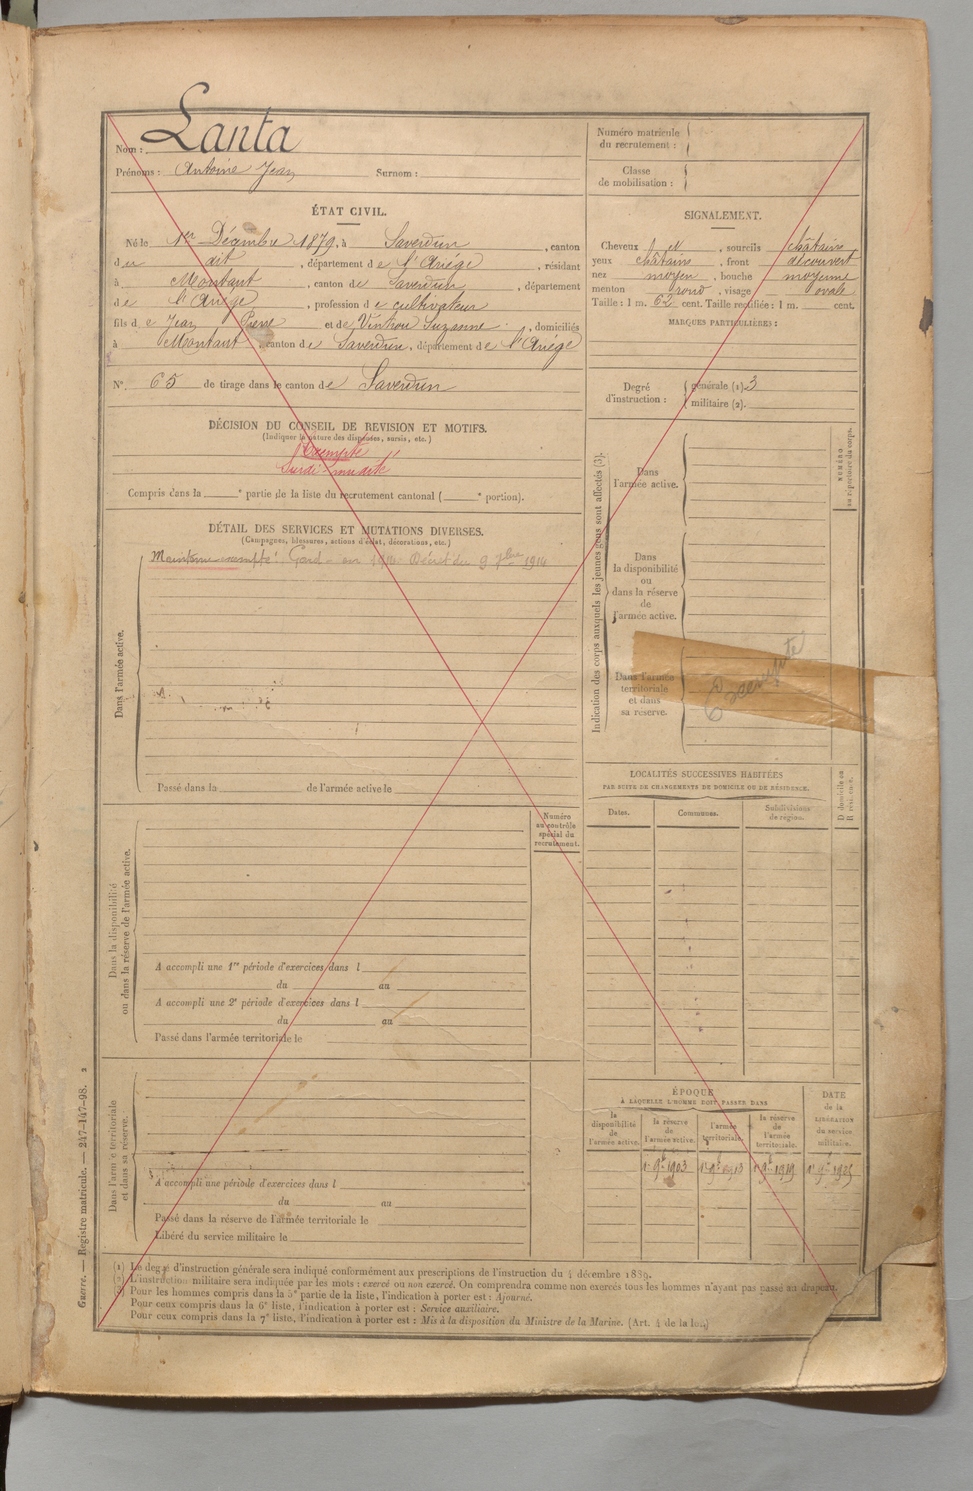 Nom : Lanta
Prénoms : Antoine Jean Surnom :
ÉTAT CIVIL.
Né le 1er Décembre 1879, à Saverdun, canton
du dit, département de l'Ariége, résidant
à Montaut, canton de Saverdun, département
de l'Ariége, profession de cultivateur
fils de Jean Pierre et de Suzanne, domiciliés
à Montaut, canton de Saverdun, département de l'Ariége
N° 65 de tirage dans le canton de Saverdun
DÉCISION DU CONSEIL DE REVISION ET MOTIFS.
(Indiquer la nature des dispenses, sursis, etc.)
Exempté
Surdi-mutité
Compris dans la e partie de la liste du recrutement cantonal ( e portion).
DÉTAIL DES SERVICES ET MUTATIONS DIVERSES.
(Campagnes, blessures, actions d'éclat, décorations, etc.)
Maintenu exempté Décret du 9 7bre 1914
Dans l'armée active.
Passé dans la de l'armée active le
Numéro
au contrôle
spécial du
recrutement.
Dans la disponibilité
ou dans la réserve de l'armée active.
A accompli une 1re période d'exercices dans l
du au
A accompli une 2e période d'exercices dans l
du au
Passé dans l'armée territoriale le
Dans l'armée territoriale
et dans sa réserve.
A accompli une période d'exercices dans l
du au
Passé dans la réserve de l'armée territoriale le
Libéré du service militaire le
Numéro matricule
du recrutement :
Classe
de mobilisation :
SIGNALEMENT.
Cheveux, sourcils châtain
yeux châtains, front découvert
nez moyen, bouche moyenne
menton rond, visage ovale
Taille : 1 m. 62 cent. Taille rectifiée : 1 m. cent.
MARQUES PARTICULIÈRES :
Degré
d'instruction :
générale (1). 3
militaire (2).
Indication des corps auxquels les jeunes gens sont affectés (3).
NUMÉRO
au répertoire du corps.
Dans
l'armée active.
Dans
la disponibilité
ou
dans la réserve
de
l'armée active.
Dans l'armée
territoriale
et dans
sa réserve.
Exempté
LOCALITÉS SUCCESSIVES HABITÉES
PAR SUITE DE CHANGEMENTS DE DOMICILE OU DE RÉSIDENCE.
Dates.
Communes.
Subdivisions
de région.
D domicile ou
R résidence.
ÉPOQUE
À LAQUELLE L'HOMME DOIT PASSER DANS
la
disponibilité
de
l'armée active.
la réserve
de
l'armée active.
l'armée
territoriale.
la réserve
de
l'armée
territoriale.
DATE
de la
LIBÉRATION
du service
militaire.
1er 9bre 1903 1er 9bre 1913 1er 9bre 1919 1er 9bre 1925
(1) Le degré d'instruction générale sera indiqué conformément aux prescriptions de l'instruction du 4 décembre 1889.
(2) L'instruction militaire sera indiquée par les mots : exercé ou non exercé. On comprendra comme non exercés tous les hommes n'ayant pas passé au drapeau.
(3) Pour les hommes compris dans la 5e partie de la liste, l'indication à porter est : Ajourné.
Pour ceux compris dans la 6e liste, l'indication à porter est : Service auxiliaire.
Pour ceux compris dans la 7e liste, l'indication à porter est : Mis à la disposition du Ministre de la Marine. (Art. 4 de la loi.)
Guerre. — Registre matricule. — 247-147-98. 2